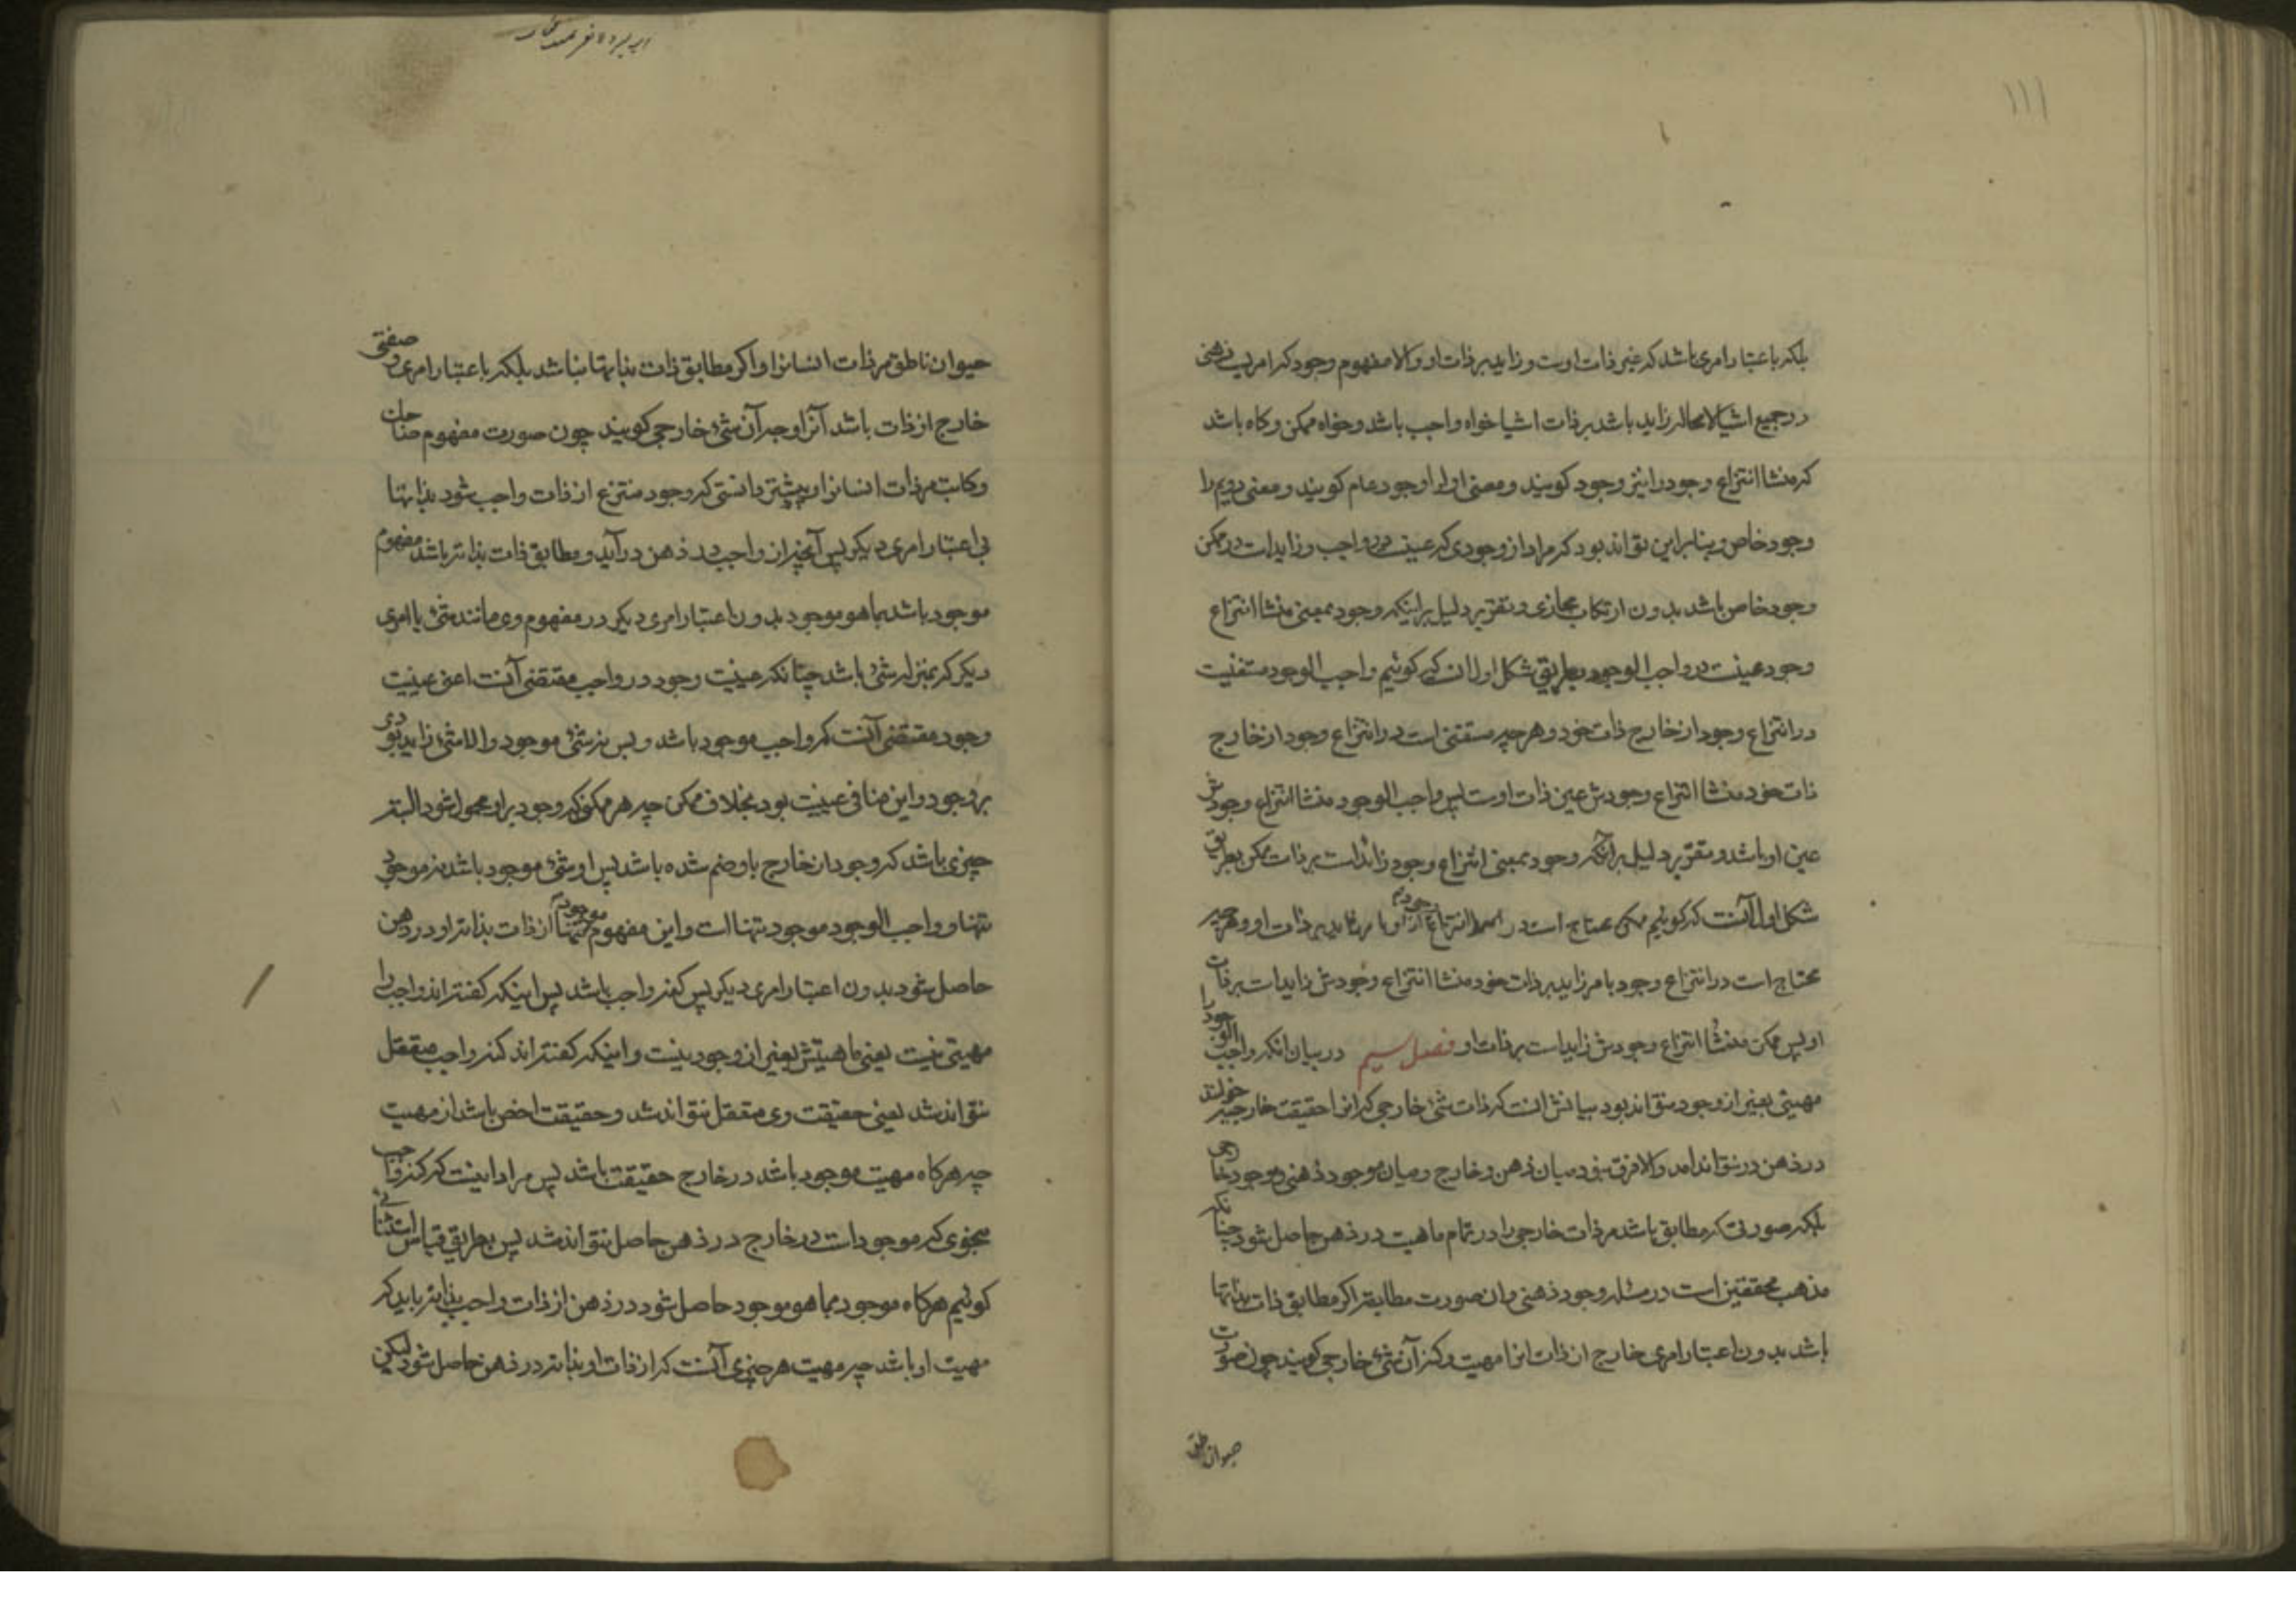 ۱۱۱
بلکه باعتبار امری باشد که غیر ذات اوست و زاید بر ذات او والا مفهوم وجود که امریست ذهنی
در جمیع اشیا لامحاله زاید باشد بر ذات اشیا خواه واجب باشد و خواه ممکن و کاه باشد
که منشا انتزاع وجود را نیز وجود کویند و معنی اول را وجود عام کویند و معنی دویم را
وجود خاص و بنابراین تواند بود که مراد از وجودی که عینست در واجب و زایدات در ممکن
وجود خاص باشد بدون ارتکاب مجازی و تقریر دلیل بر اینکه وجود بمعنی منشا انتزاع
وجود عینست در واجب الوجود بطریق شکل اول ان که کوئیم واجب الوجود مستغنیست
در انتزاع وجود از خارج ذات خود و هر چه مستغنی است در انتزاع وجود از خارج
ذات خود منشا انتزاع وجودش عین ذات اوست پس واجب الوجود منشا انتزاع وجودش
عین او باشد و تقریر دلیل بر انکه وجود بمعنی انتزاع وجود زائد است بر ذات ممکن بطریق
شکل اول آنست که کوئیم ممکن محتاج است در انتزاع وجود از او بامر زاید بر ذات او و هر چه
محتاج است در انتزاع وجود بامر زاید بر ذات خود منشا انتزاع وجودش زاید است بر ذات
او پس ممکن منشا انتزاع وجودش زاید است بر ذات او فصل سیم در بیان انکه واجب الوجود را
مهیتی بغیر از وجود نتواند بود بیانش انست که ذات شیء خارجی که انرا حقیقت خارجیه خوانند
در ذهن در نتواند امد والا فرق نبود میان ذهن و خارج و میان موجود ذهنی و موجود خارجی
بلکه صورتی که مطابق باشد مر ذات خارجی را در تمام ماهیت در ذهن حاصل شود چنانکه
مذهب محققین است در مسئله وجود ذهنی و ان صورت مطابقه اکر مطابق ذات بذاتها
باشد بدون اعتبار امری خارج از ذات انرا مهیت و کنه آن شیء خارجی کویند چون صورت
حیوان ناطق
حیوان ناطق مر ذات انسانرا و اکر مطابق ذات بذاتها نباشد بلکه باعتبار امری و صفتی
خارج از ذات باشد آنرا وجه آن شیء خارجی کویند چون صورت مفهوم ضاحک
و کاتب مر ذات انسانرا و پیشتر دانستی که وجود منتزع از ذات واجب شود بذاتها
بی اعتبار امری دیکر پس آنچه از واجب در ذهن در آید و مطابق ذات بذاته باشد مفهوم
موجود باشد بما هو موجود بدون اعتبار امری دیکر در مفهوم وی مانند شیء یا امری
دیکر که بمنزله شیء باشد چنانکه عینیت وجود در واجب مقتضی آنست اعنی عینیت
وجود مقتضی آنست که واجب موجود باشد و بس نه شیء موجود والا شیء زاید بودی
بر وجود و این منافی عینیت بود بخلاف ممکن چه هر ممکنی که وجود بر او محمول شود البته
چیزی باشد که وجود از خارج باو ضم شده باشد پس او شیء موجود باشد نه موجود
تنها و واجب الوجود موجود تنها است و این مفهوم موجود تنها از ذات بذاته او در ذهن
حاصل شود بدون اعتبار امری دیکر پس کنه واجب باشد پس اینکه کفته اند واجب را
مهیتی نیست یعنی ماهیتش بغیر از وجود نیست و اینکه کفته اند کنه واجب متعقل
نتواند شد یعنی حقیقت وی متعقل نتواند شد و حقیقت اخص باشد از مهیت
چه هرکاه مهیت موجود باشد در خارج حقیقت باشد پس مراد اینست که کنه واجب
بنحوی که موجود است در خارج در ذهن حاصل نتواند شد پس بطریق قیاس استثنائی
کوئیم هرکاه موجود بما هو موجود حاصل شود در ذهن از ذات واجب بذاته باید که
مهیت او باشد چه مهیت هر چیزی آنست که از ذات او بذاته در ذهن حاصل شود لیکن